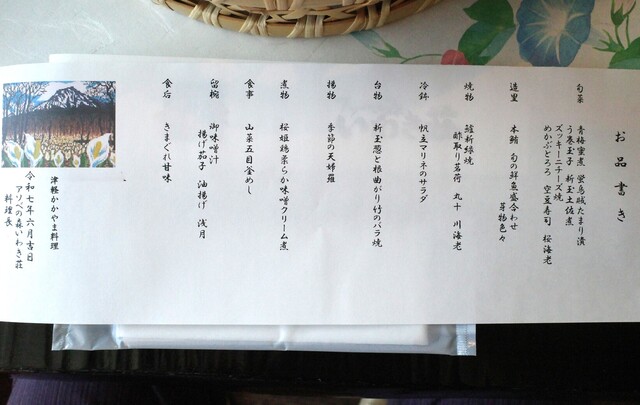 お品書き
旬菜
青梅蜜煮 蛍烏賊たまり漬
う巻玉子 新玉土佐煮
ズッキーニチーズ焼
めかぶとろろ 空豆寿司 桜海老
造里
本鮪 旬の鮮魚盛合わせ
芽物色々
焼物
鱸新緑焼
酢取り茗荷 丸十 川海老
冷鉢
帆立マリネのサラダ
台物
新玉葱と根曲がり竹のバラ焼
揚物
季節の天婦羅
煮物
桜姫鶏柔らか味噌クリーム煮
食事
山菜五目釜めし
留椀
御味噌汁
揚げ茄子 油揚げ 浅月
食后
きまぐれ甘味
津軽かかやま料理
令和七年六月吉日
アソベの森いわき荘
料理長